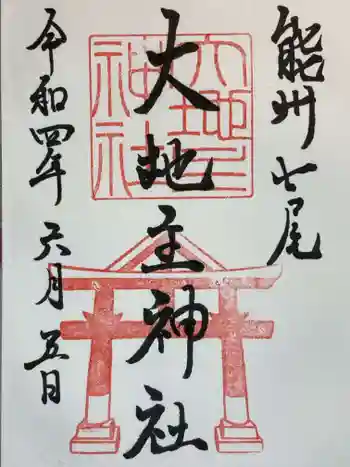 能州七尾
大地主神社
令和四年六月五日
大地主
神社